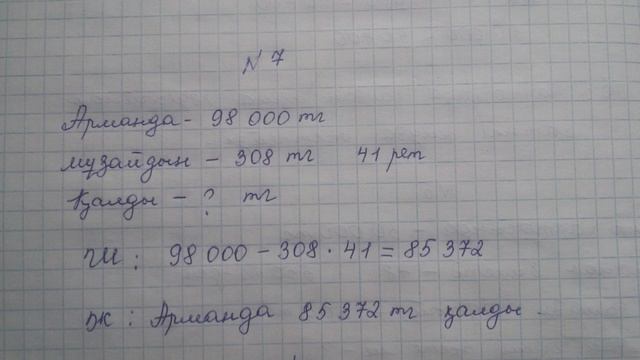 № 7
Арманда - 98 000 тг
мұзайдын - 308 тг 41 рет
Қалды - ? тг
ТШ: 98 000 - 308 · 41 = 85 372
ЖЖ: Арманда 85 372 тг қалды.